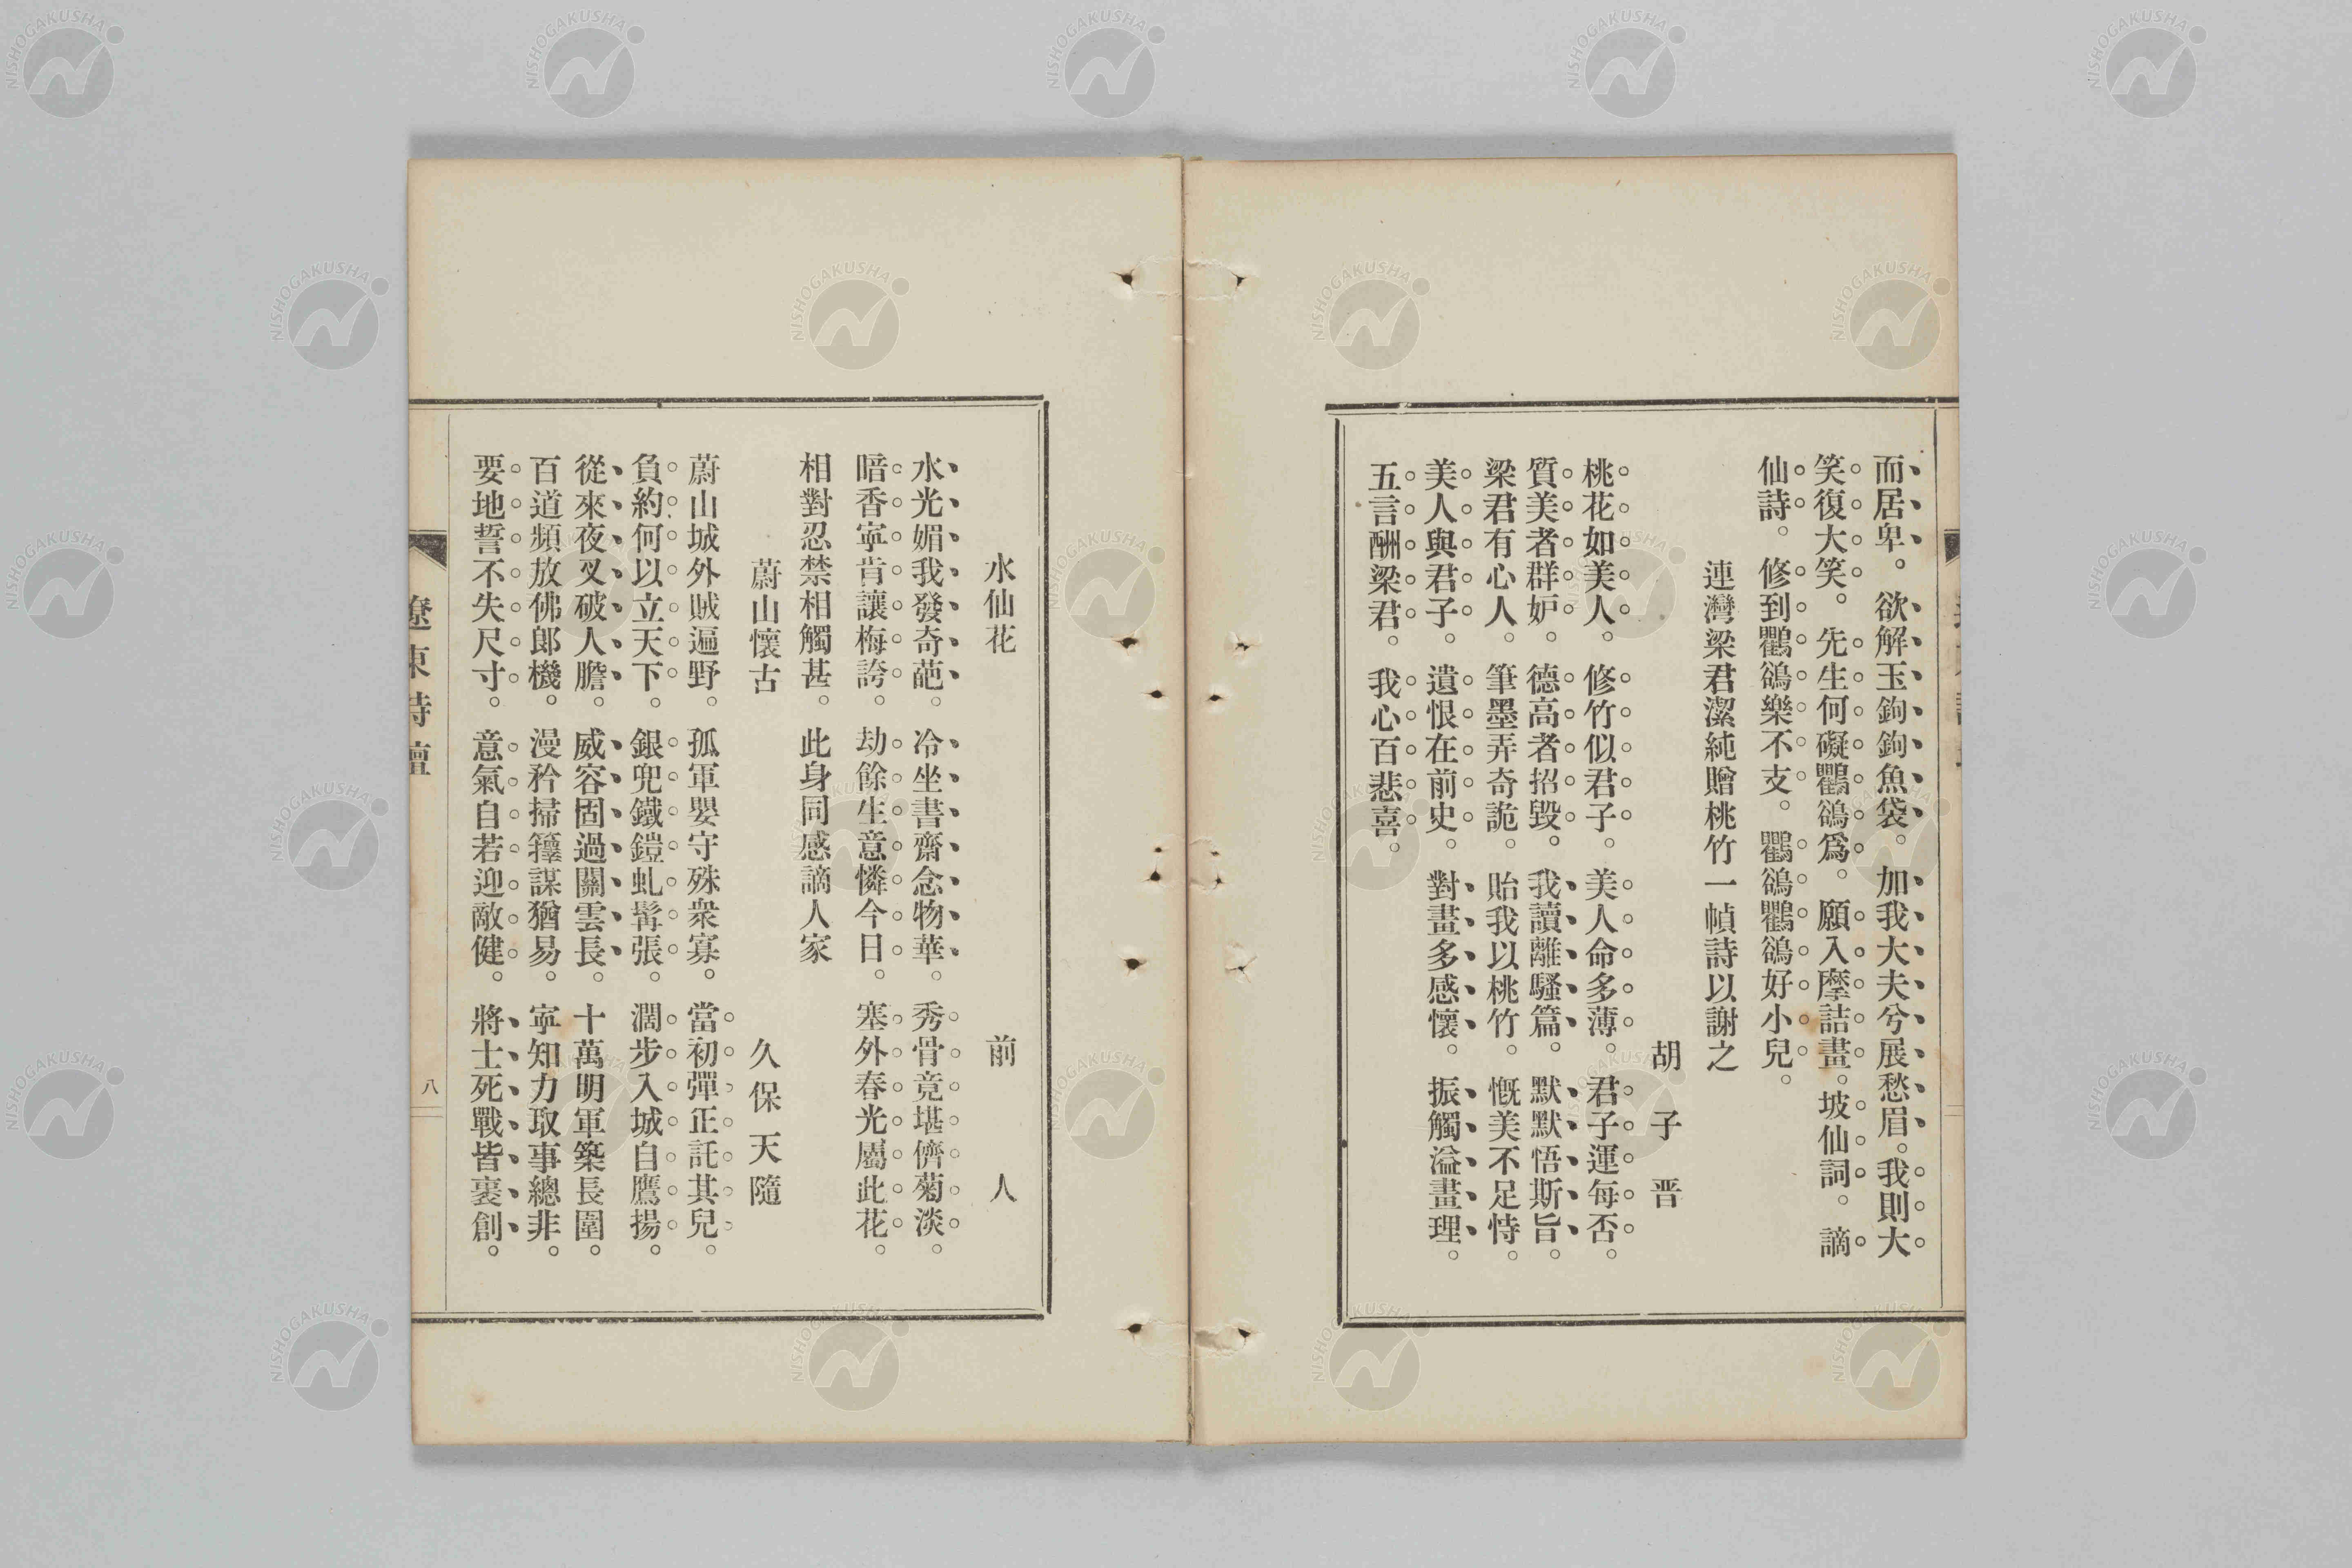 而居卑。欲解玉鉤鉤魚袋。加我大夫兮展愁眉。我則大
笑復大笑。先生何礙鸜鵒爲。願入摩詰畫。坡仙詞。謫
仙詩。修到鸜鵒樂不支。鸜鵒鸜鵒好小兒。
連灣梁君潔純贈桃竹一幀詩以謝之
胡子晋
桃花如美人。修竹似君子。美人命多薄。君子運每否。
質美者群妒。德高者招毀。我讀離騷篇。默默悟斯旨。
梁君有心人。筆墨弄奇詭。貽我以桃竹。慨美不足恃。
美人與君子。遺恨在前史。對畫多感懷。振觸溢畫理。
五言酬梁君。我心百悲喜。
水仙花
前人
水光媚我發奇葩。冷坐書齋念物華。秀骨竟堪儕菊淡。
暗香寧肯讓梅誇。劫餘生意憐今日。塞外春光屬此花。
相對忍禁相觸甚。此身同感謫人家
蔚山懷古
久保天隨
蔚山城外賊遍野。孤軍嬰守殊衆寡。當初彈正託其兒。
負約何以立天下。銀兜鐵鎧虬髯張。濶步入城自鷹揚。
從來夜叉破人膽。威容固過關雲長。十萬明軍築長圍。
百道頻放佛郎機。漫矜掃籜謀猶易。寧知力取事總非。
要地誓不失尺寸。意氣自若迎敵健。將士死戰皆裹創。
遼東詩壇
八
NISHOGAKUSHA